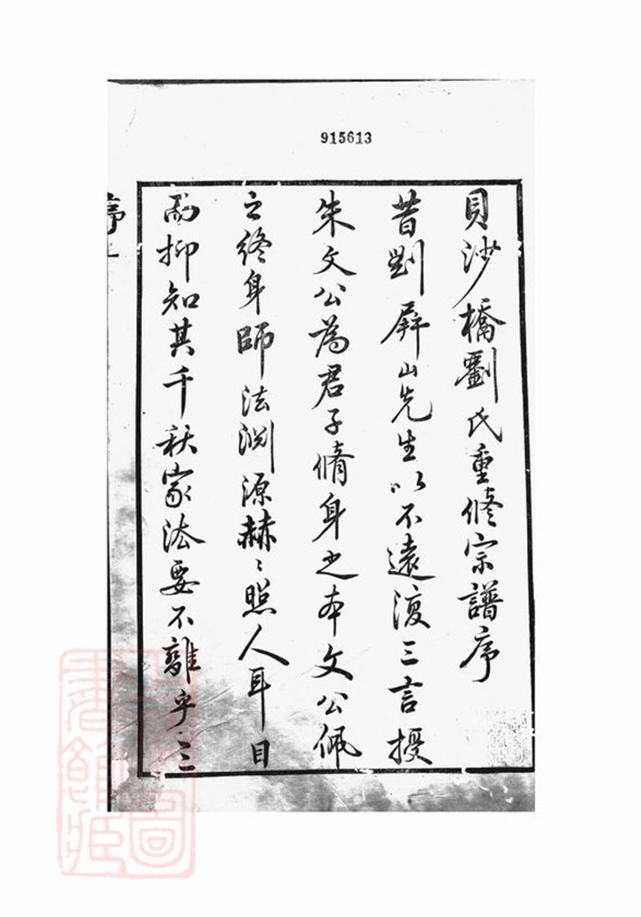 915613
貝沙橋劉氏重修宗譜序
昔劉屏山先生以不遠復三言授
朱文公為君子脩身之本文公佩
之終身師法淵源赫〻照人耳目
抑知其千秋家法要不離乎三
序 一
上海圖書館藏